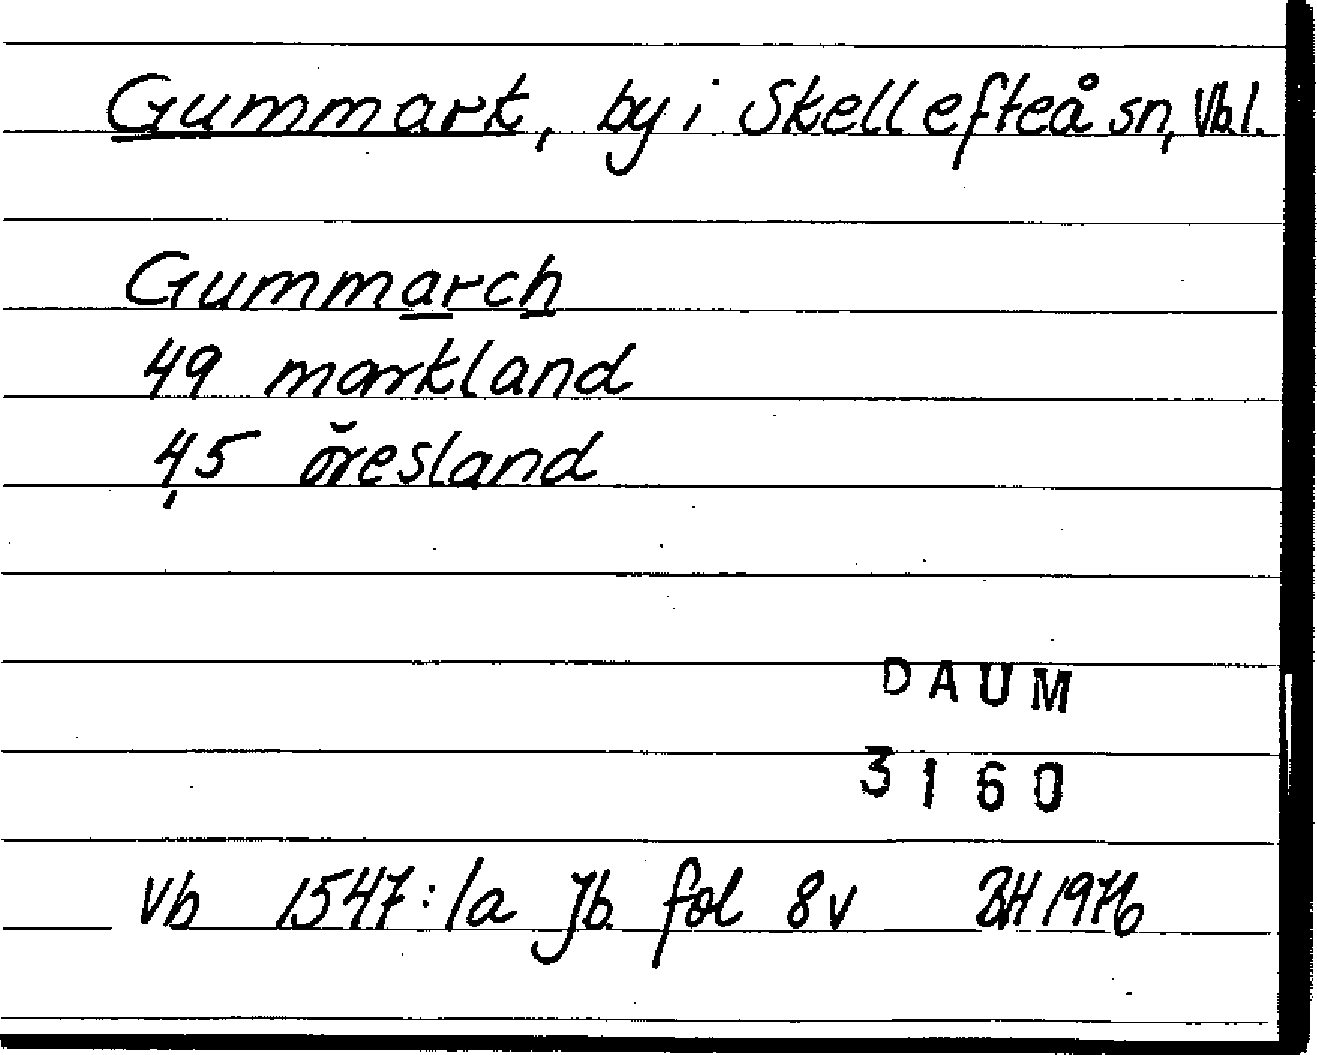 Gummark, by i Skellefteå sn, Vbl.
Gummarch
49 markland
45 öresland
DAUM
3160
Vb 1547:1a Jb fol 8v BH 1976